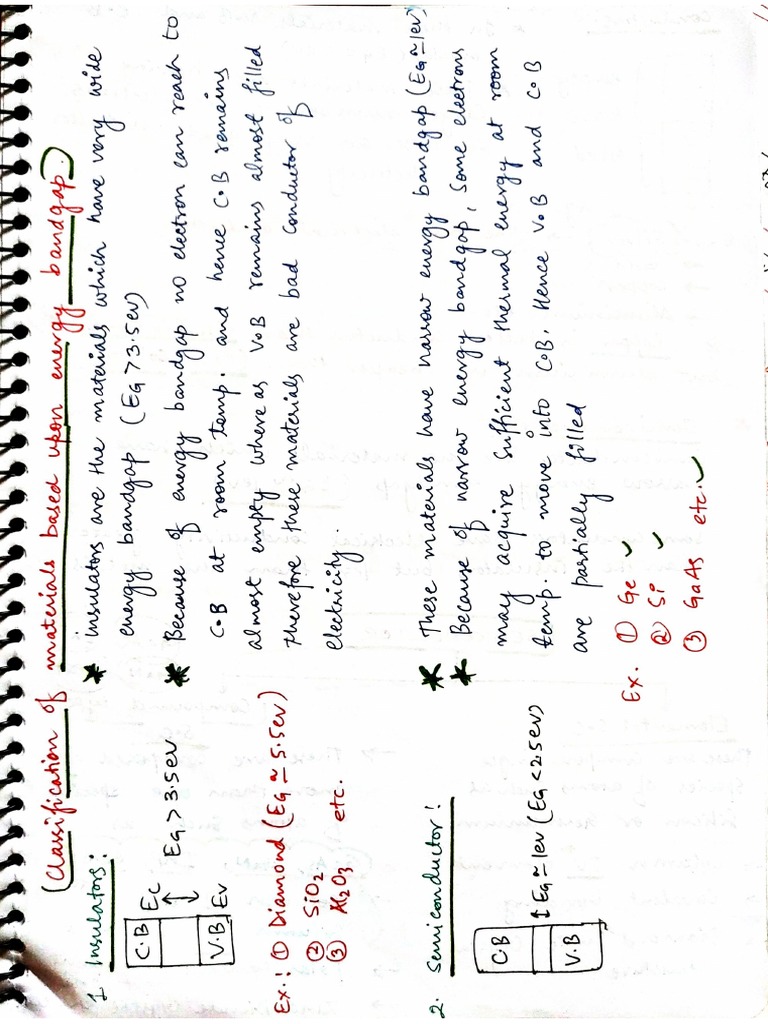 Classification of materials based upon energy bandgap.
1. Insulators:
C.B Ec
EG > 3.5ev
V.B Ev
Ex.: ① Diamond (EG ≃ 5.5ev)
② SiO2
③ Al2O3 etc.
* Insulators are the materials which have very wide
energy bandgap (EG > 3.5ev)
* Because of energy bandgap no electron can reach to
C.B at room temp. and hence C.B remains
almost empty where as V.B remains almost filled
therefore these materials are bad conductor of
electricity.
2. Semiconductor!
C.B
↕ EG ≃ 1ev (EG < 2.5ev)
V.B
* These materials have narrow energy bandgap (EG ≃ 1ev)
* Because of narrow energy bandgap, Some electrons
may acquire sufficient thermal energy at room
temp to move into C.B. Hence V.B and C.B
are partially filled
Ex. ① Ge ✓
② Si ✓
③ GaAs etc. ✓